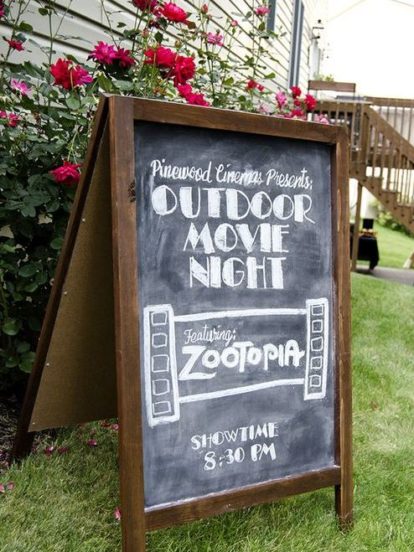 Pinewood Cinemas Presents:
OUTDOOR
MOVIE
NIGHT
Featuring:
ZOOTOPIA
SHOWTIME
8:30 PM